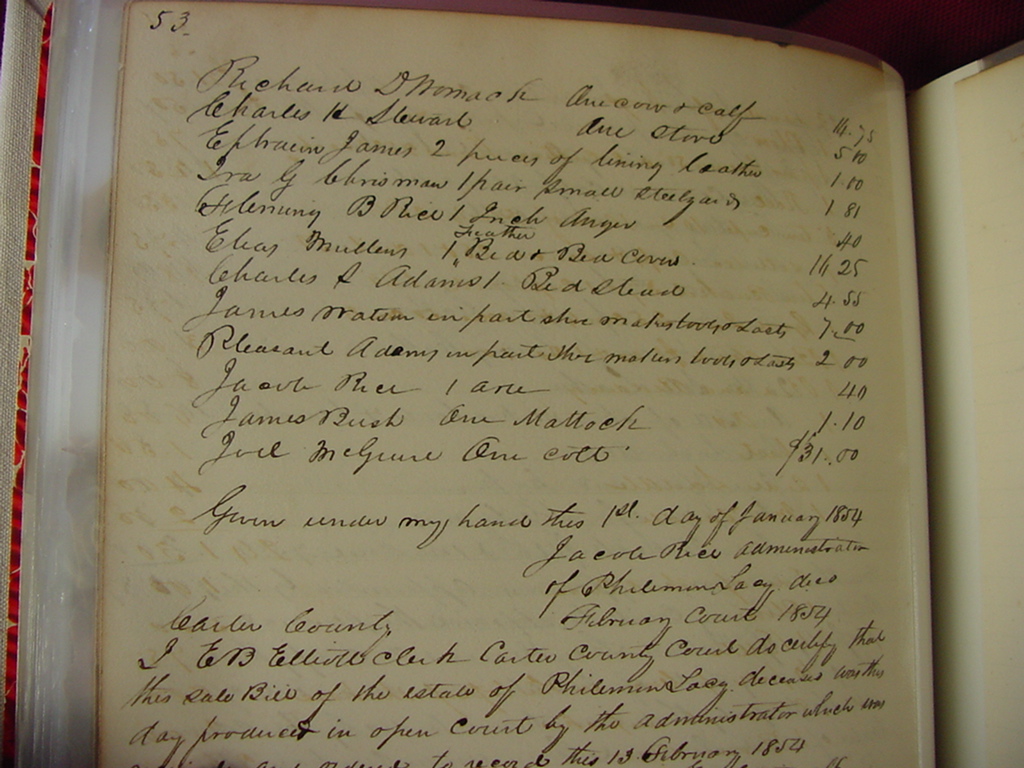 53.
Richard D Womack One cow & calf 14.75
Charles H Stewart One stove 5 00
Ephraim James 2 pieces of lining leather 1.00
Ira G Chrisman 1 pair small steelyards 1 81
Flemming B Rice 1 Inch Auger 40
Feather
Elias Mullens 1 Bed & Bed cover 25
Charles Adams 1 Bedstead 4.55
James Watson in part shoe makers tools & Lasts 7.00
Pleasant Adams in part shoe makers tools & Lasts 2 00
Jacob Rice 1 axe 40
James Bush One Mattock 1.10
Joel McGuire One colt $31.00
Given under my hand this 1st. day of January 1854
Jacob Rice administrator
of Philemon Lacy decd
February Court 1854
Carter County
I E B Elliott Clerk Carter County Court do certify that
this sale Bill of the estate of Philemon Lacy deceased was this
day produced in open Court by the administrator which was
and ordered to record this 13 February 1854